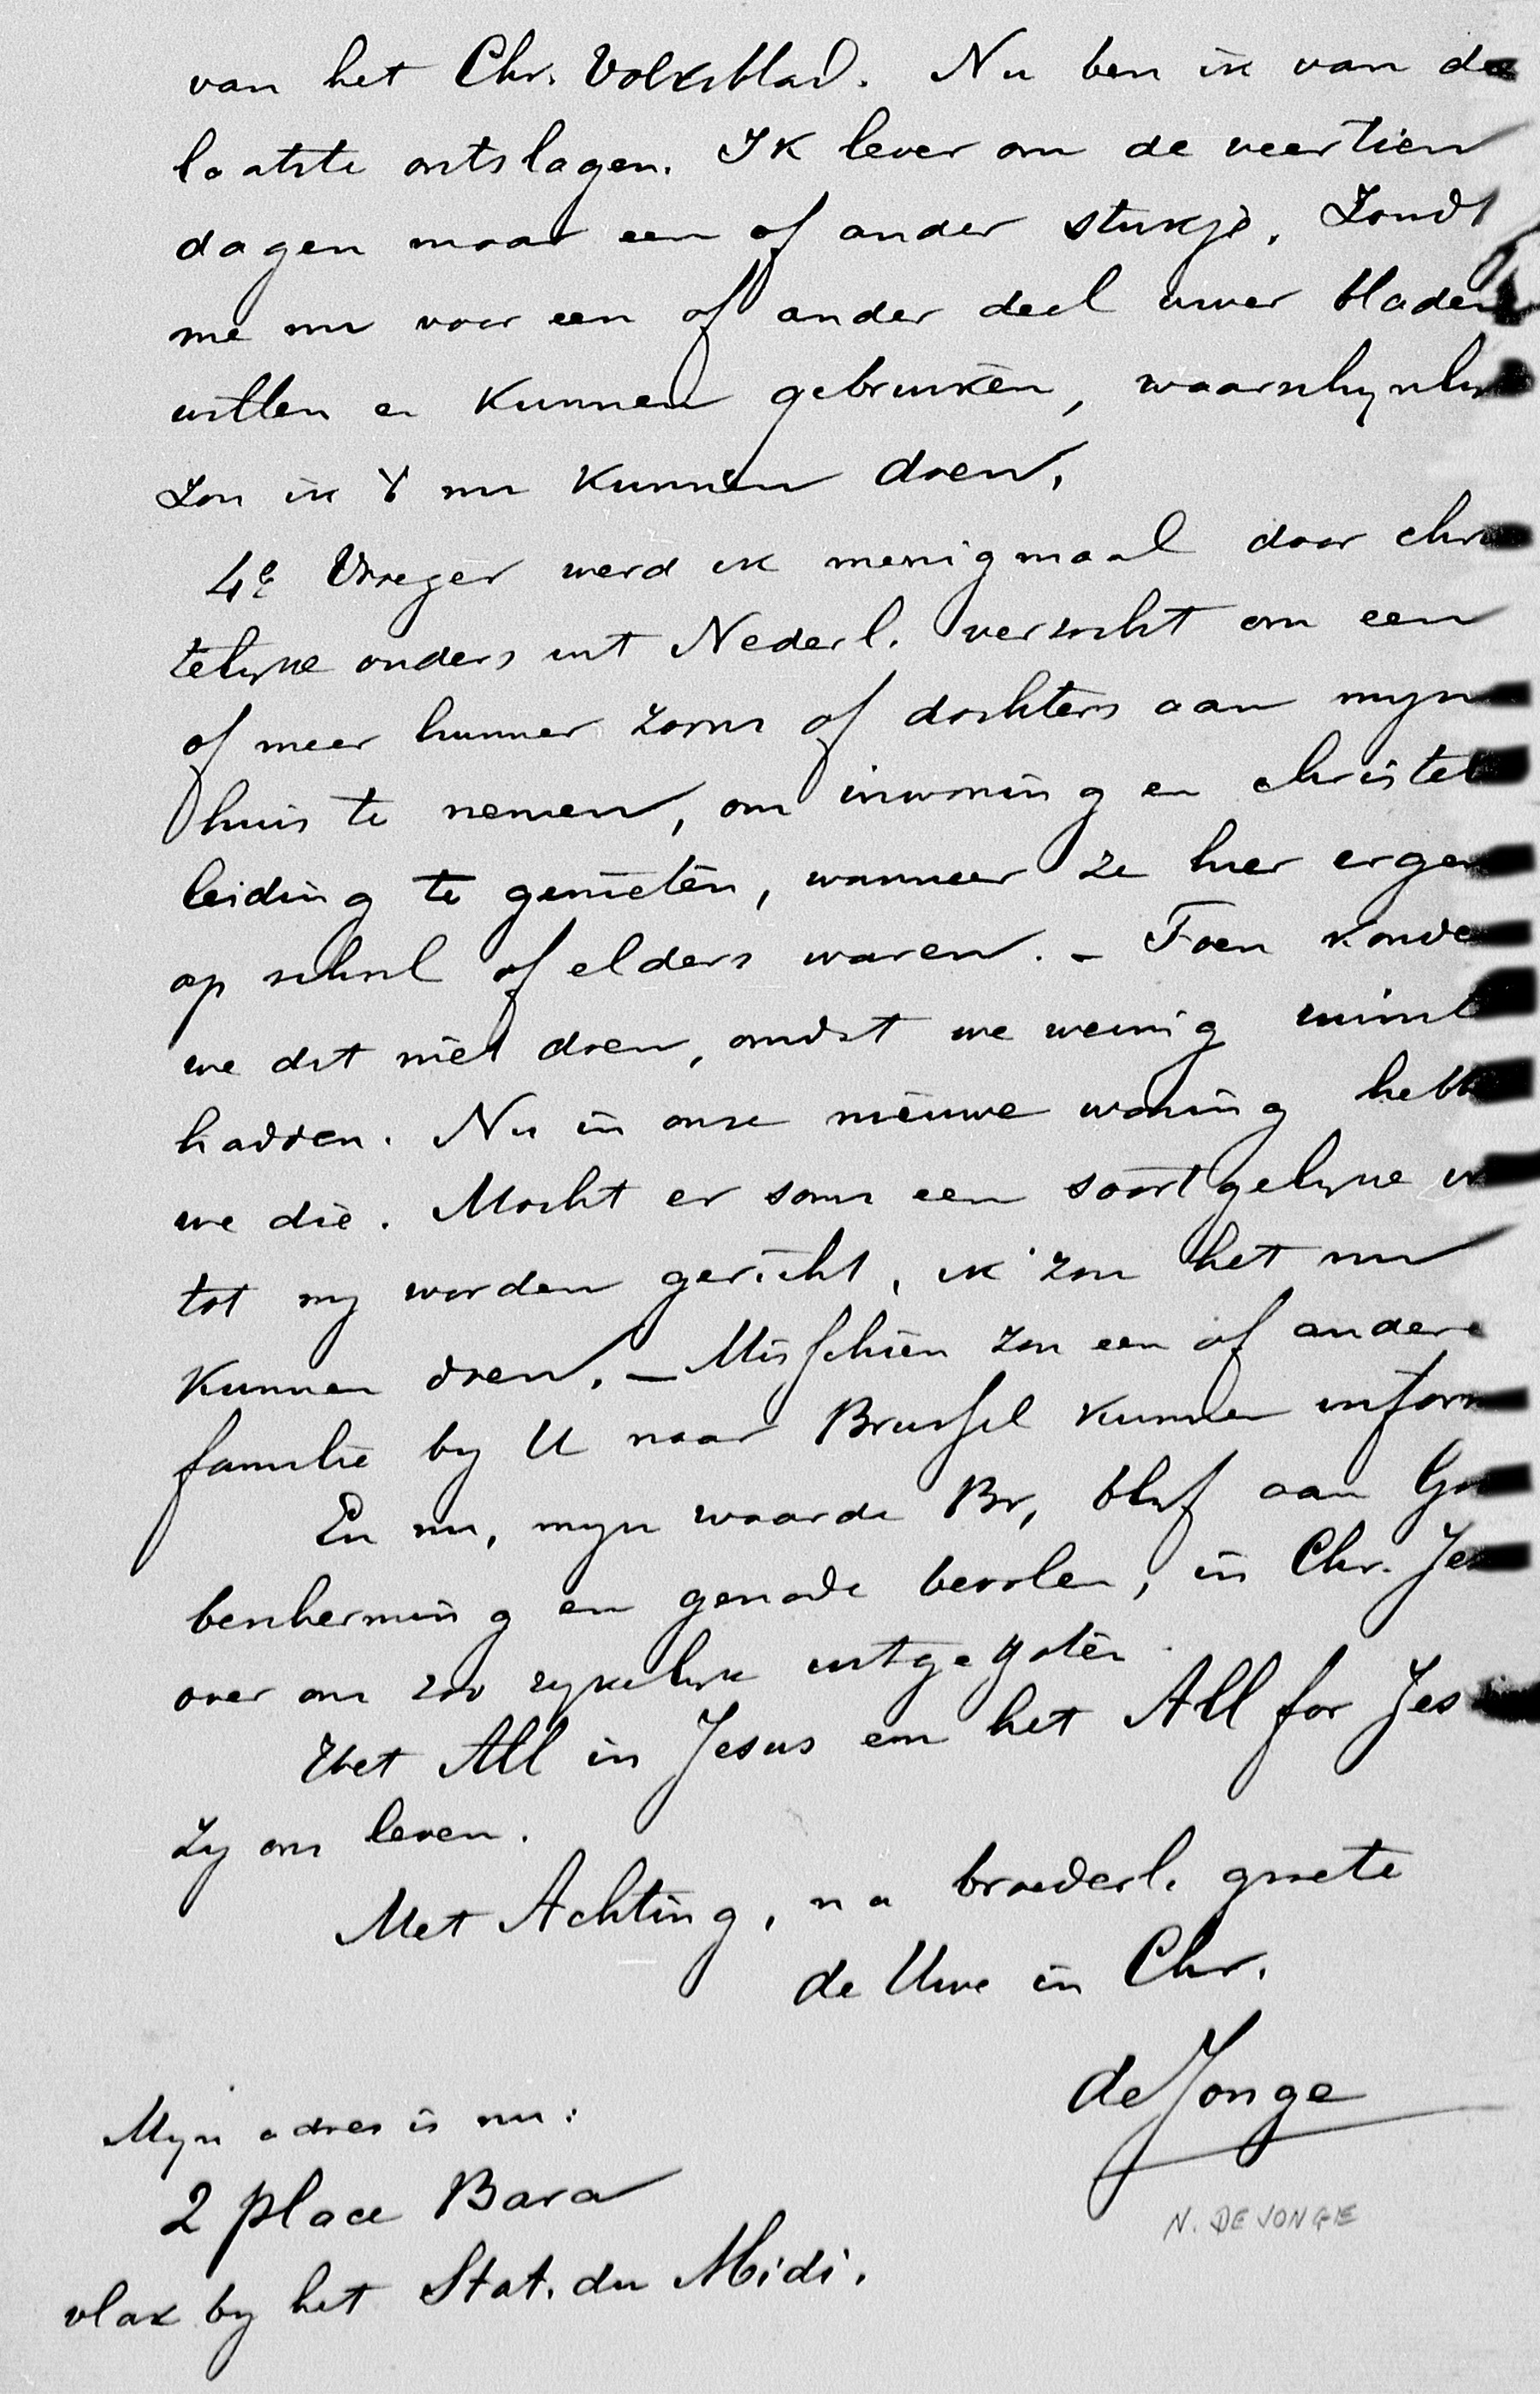 van het Chr. Volksblad. Nu ben ik van de
laatste ontslagen. Ik lever om de veertien
dagen maar een of ander stukje. Zoudt
me nu voor een of ander deel uwer bladen
willen en kunnen gebruiken, waarschynly
Zou ik 't nu kunnen doen.
4e Vroeger werd ik menigmaal door chr
telyke ouders uit Nederl. verzocht om een
of meer hunner zoons of dochters aan myn
huis te nemen, om inwoning en christel
leiding te genieten, wanneer ze hier erge
op school of elders waren. - Toen konde
we dit niet doen, omdat we weinig ruimt
hadden. Nu in onze nieuwe woning hebb
we die. Mocht er soms een soortgelyke
tot my worden gericht, ik zou het nu
kunnen doen. - Misschien zou een of andere
familie by U naar Brussel kunnen inform
En nu, myn waarde Br, blyf aan Go
bescherming en genade bevolen, in Chr. Je
over ons zoo rykelyk uitgegoten.
Het All in Jesus en het All for Jes
Zy ons leven.
Met Achting, na broederl. groete
de Uwe in Chr.
de Jonge
N. DE JONGE
Myn adres is nu:
2 place Bara
vlak by het Stat. du Midi.